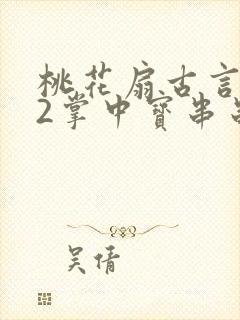 桃花扇古言
2掌中寳串
吴倩